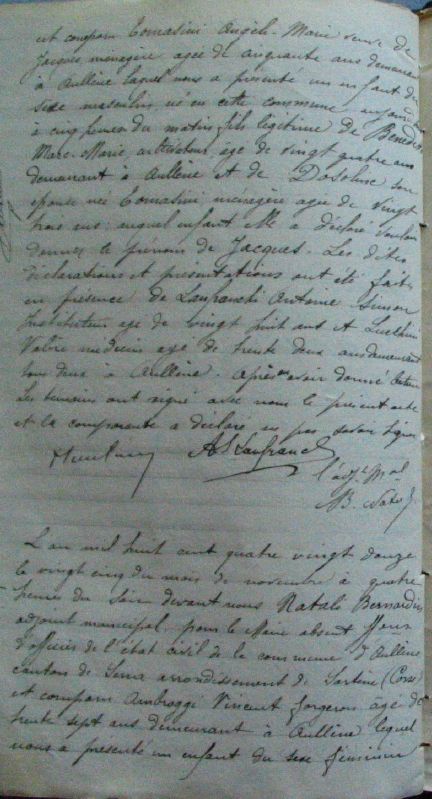 est comparu Tomasini Angèle-Marie veuve de
Jacques ménagère agée de cinquante ans demeurant
à Aullène laquel nous a présenté un enfant du
sexe masculin né en cette commune
à cinq heures du matin, fils légitime de
Marc-Marie, cultivateur, age de vingt quatre ans
demeurant à Aullène et de son
épouse née Tomasini ménagère agée de vingt
trois ans; auquel enfant elle a déclaré vouloir
donner le prénom de Jacques. Les dites
déclarations et présentations ont été faites
en présence de Lanfranchi Antoine Simon
Instituteur age de vingt huit ans et Lucchini
médecin age de trente deux ans demeurant
tous deux à Aullène. Après avoir donné lecture
Les témoins ont signé avec nous le présent acte
et la comparante a déclaré ne pas savoir signer
AS Lanfranchi
l'adjt Mal
B. Natali
L'an mil huit cent quatre vingt douze
le vingt cinq du mois de novembre à quatre
heures du soir devant nous Natali Bernardin
adjoint municipal pour le Maire absent
d'officier de l'état civil de la commune d'Aullène
canton de Serra arrondissement de Sartène (Corse)
est comparu Ambroggi Vincent forgeron âgé de
trente sept ans demeurant à Aullène lequel
nous a présenté un enfant du sexe féminin